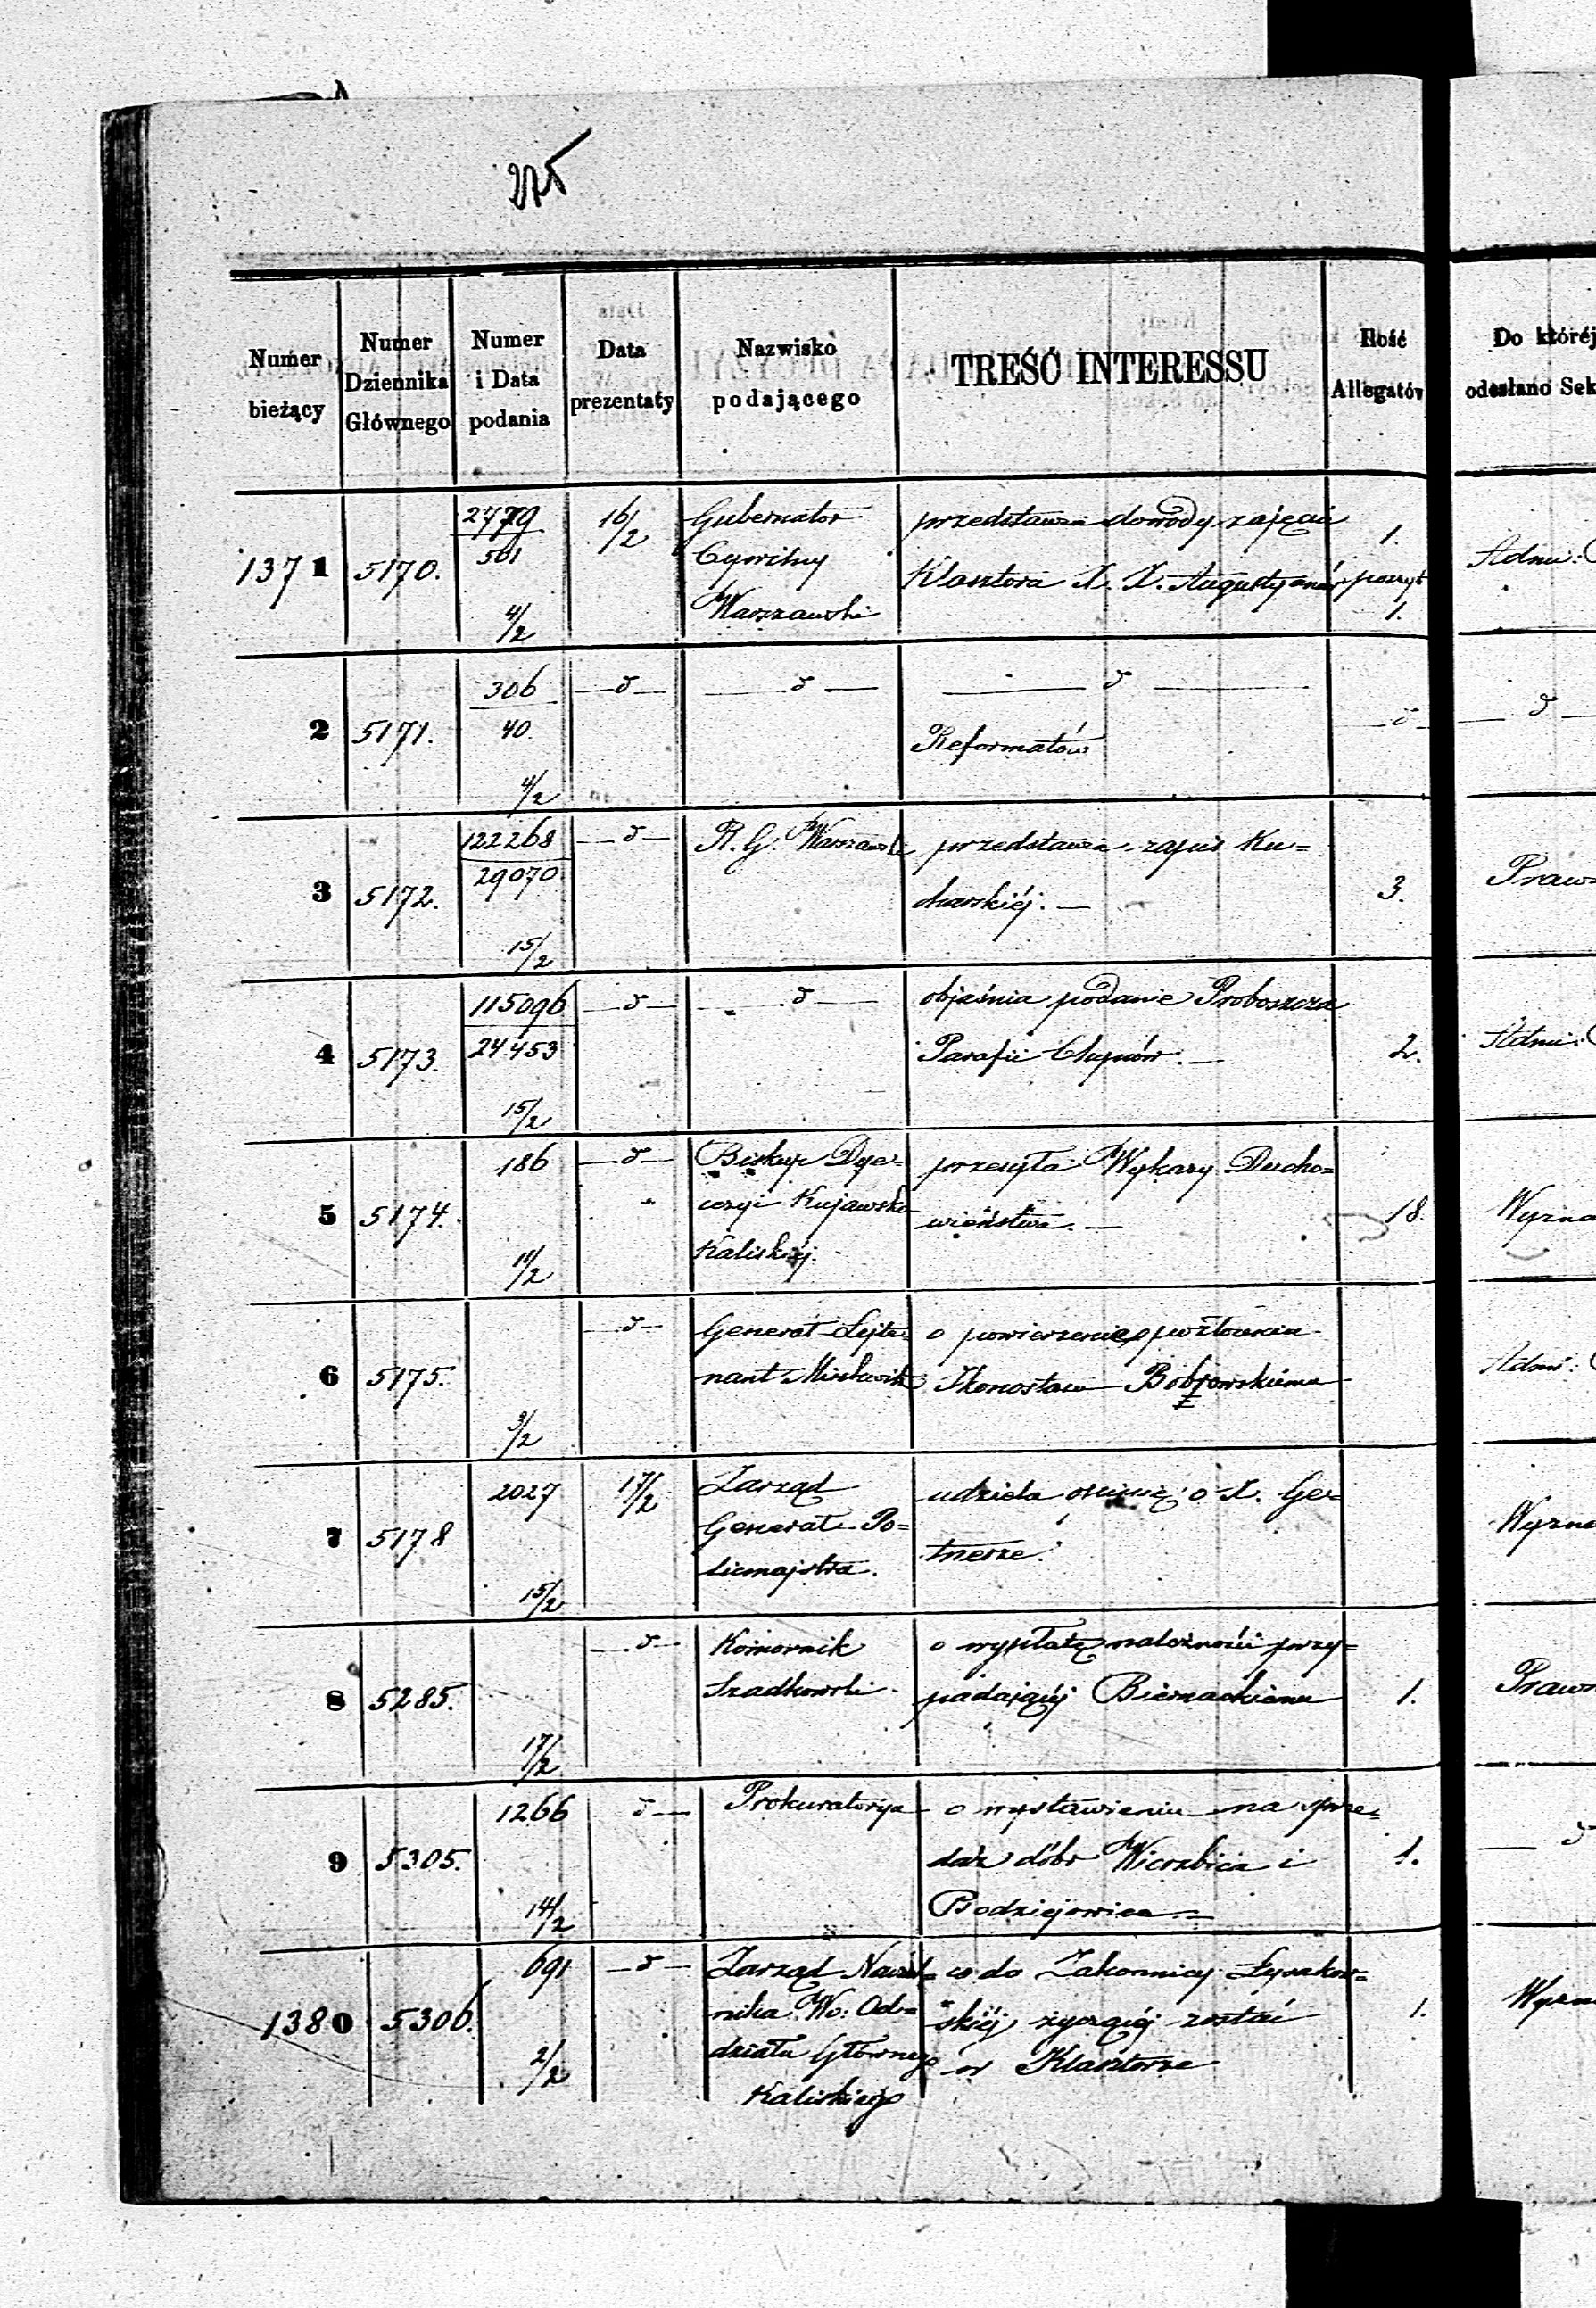 275
Numer bieżący
Numer Dziennika Głównego
Numer i Data podania
Data prezentaty
Nazwisko podającego
TREŚĆ INTERESSU
Ilość Allegatów
Do której odesłano Sek
1371 5170. 2779/501 4/2 16/2
Gubernator
Cywilny
Warszawski
przedstawia dowody zajęcia
Klasztora X. X. Augustyanów
1.
poszyt
1.
Adm:
2 5171. 306/40. 4/2 — d — — d — — d —
Reformatów
— d — — d —
3 5172. 122268/29070 15/2 — d —
R. G. Warszawski
przedstawia zapis Ku=
charskiéj. —
3.
Praw
4 5173. 115096/24.453 15/2 — d — — d —
objaśnia podanie Proboszcza
Parafii —
2.
Adm:
5 5174. 186 11/2 — d —
Biskup Dye=
cezyi Kujawsko
Kaliskiéj.
przesyła Wykazy Ducho=
wieństwa. —
18.
Wyzna
6 5175. 3/2 — d —
Generał Lejte
nant
o powierzenie pozłocenia
Ikonostasu Bobrowskiému
Adm:
7 5178 2027 15/2 17/2
Zarząd
Generał Po=
licmajstra.
udziela opinię o X. Ger=
tnerze.
Wyzna
8 5285. 17/2 — d —
Komornik
Szadkowski
o wypłatę należności przy=
padającéj Biernackiemu
1.
Praw
9 5305. 1266 14/2 d —
Prokuratorya
o wystawieniu na sprze=
daż dóbr Wierzbica i
Bodziejowice —
1.
— d
1380 5306. 691 2/2 — d —
Zarząd Naczel=
nika Wo: Od=
działu Głównego
Kaliskiego
co do Zakonnicy Łysakow=
skiéj życzącéj zostać
w Klasztorze
1.
Wyzn